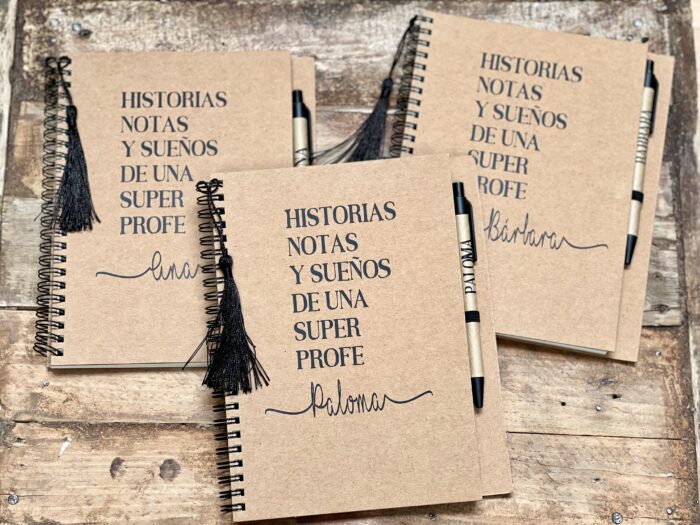 HISTORIAS
NOTAS
Y SUEÑOS
DE UNA
SUPER
PROFE
HISTORIAS
NOTAS
Y SUEÑOS
DE UNA
SUPER
PROFE
Bárbara
HISTORIAS
NOTAS
Y SUEÑOS
DE UNA
SUPER
PROFE
Paloma
PALOMA